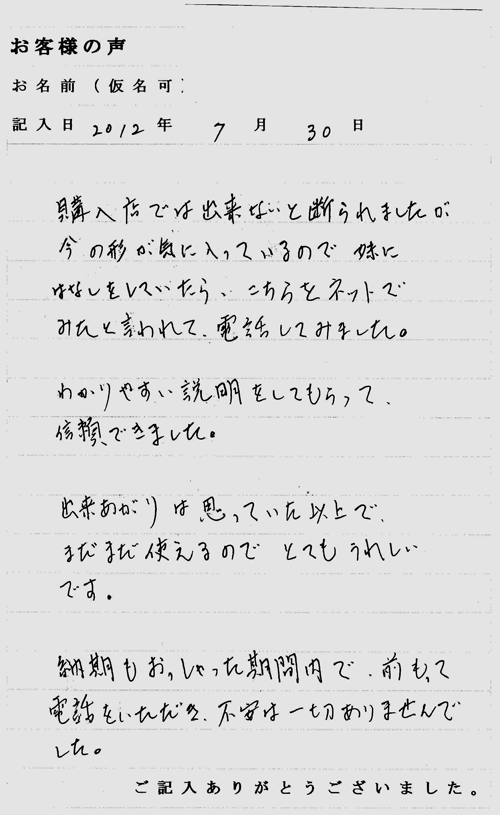 お客様の声
お名前（仮名可）
記入日 2012 年 7 月 30 日
購入店では出来ないと断られましたが
今の形が気に入っているので 妹に
はなしをしていたら、こちらをネットで
みたと言われて、電話してみました。
わかりやすい説明をしてもらって、
信頼できました。
出来あがりは思っていた以上で、
まだまだ使えるので とてもうれしい
です。
納期もおっしゃった期間内で、前もって
電話をいただき、不安は一切ありませんで
した。
ご記入ありがとうございました。